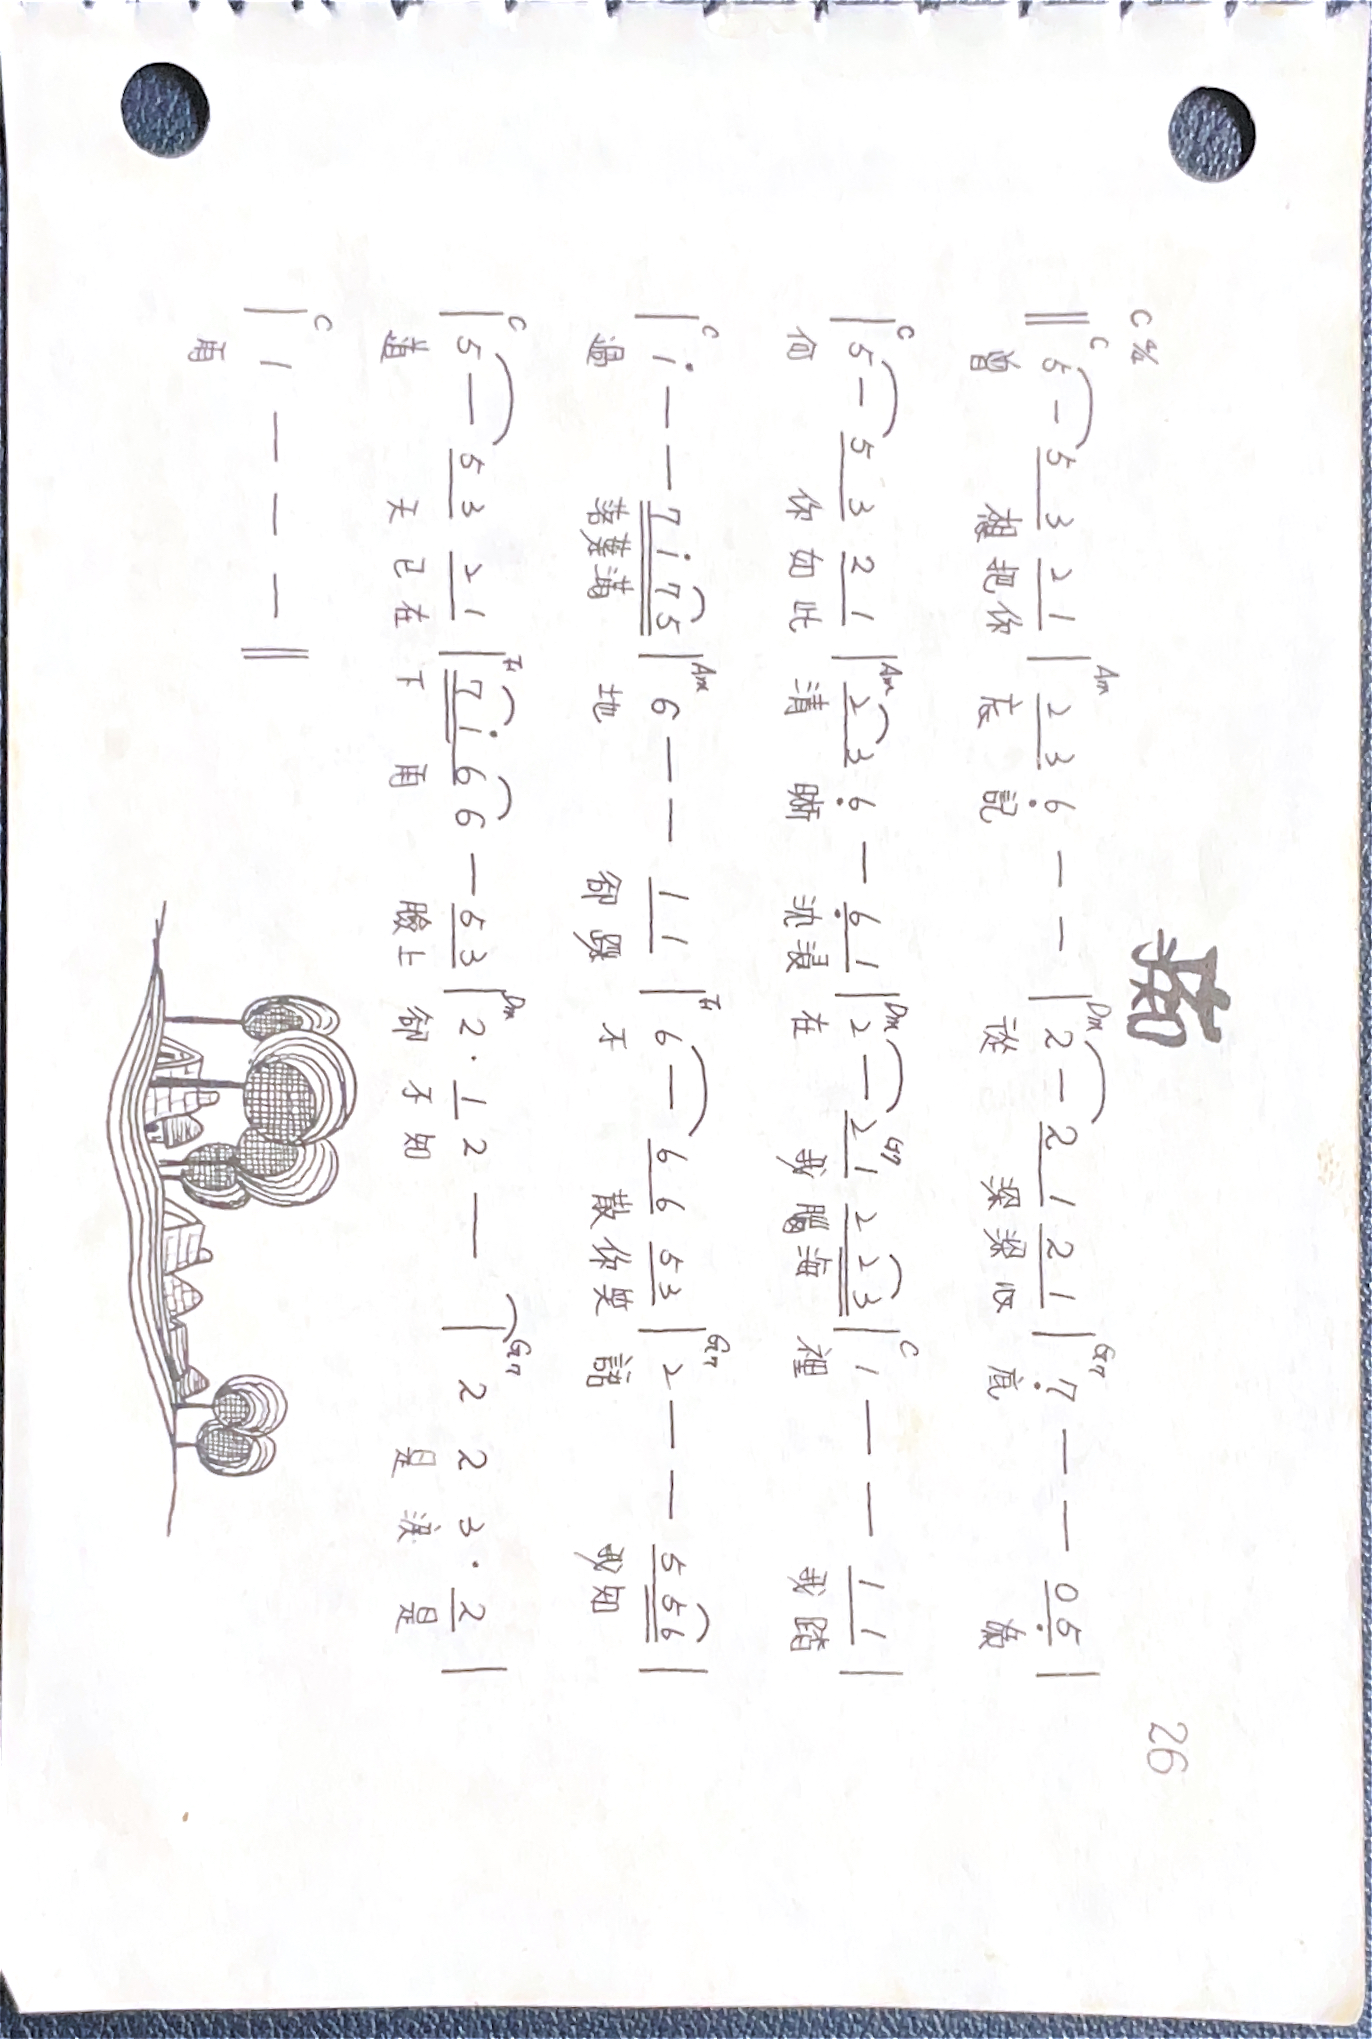 痴
26
C 4/4
C Am Dm G7
‖ 5 – 5 3 2 1 | 2 3 6̣ – – | 2 – 2 1 2 1 | 7̣ – – 0 5̣ |
曾 想把你 忘 記 從 深深心 底 為
C Am Dm G7 C
| 5 – 5 3 2 1 | 2 3 6̣ – 6̣ 1 | 2 – 2 1 2 2 3 | 1 – – 1 1 |
何 你如此 清 晰 沈浸 在 我腦海 裡 我踏
C Am F G7
| i – – 7 i 7 5 | 6 – – 1 1 | 6 – 6 6 5 3 | 2 – – 5 5 6 |
過 落葉滿 地 卻踩 不 散你笑 語 我知
C F Dm G7
| 5 – 5 3 2 1 | 7 i 6 6 – 5 3 | 2 · 1 2 – | 2 2 3 · 2 |
道 天已在 下 雨 臉上 卻不知 是淚是
C
| 1 – – – ‖
雨